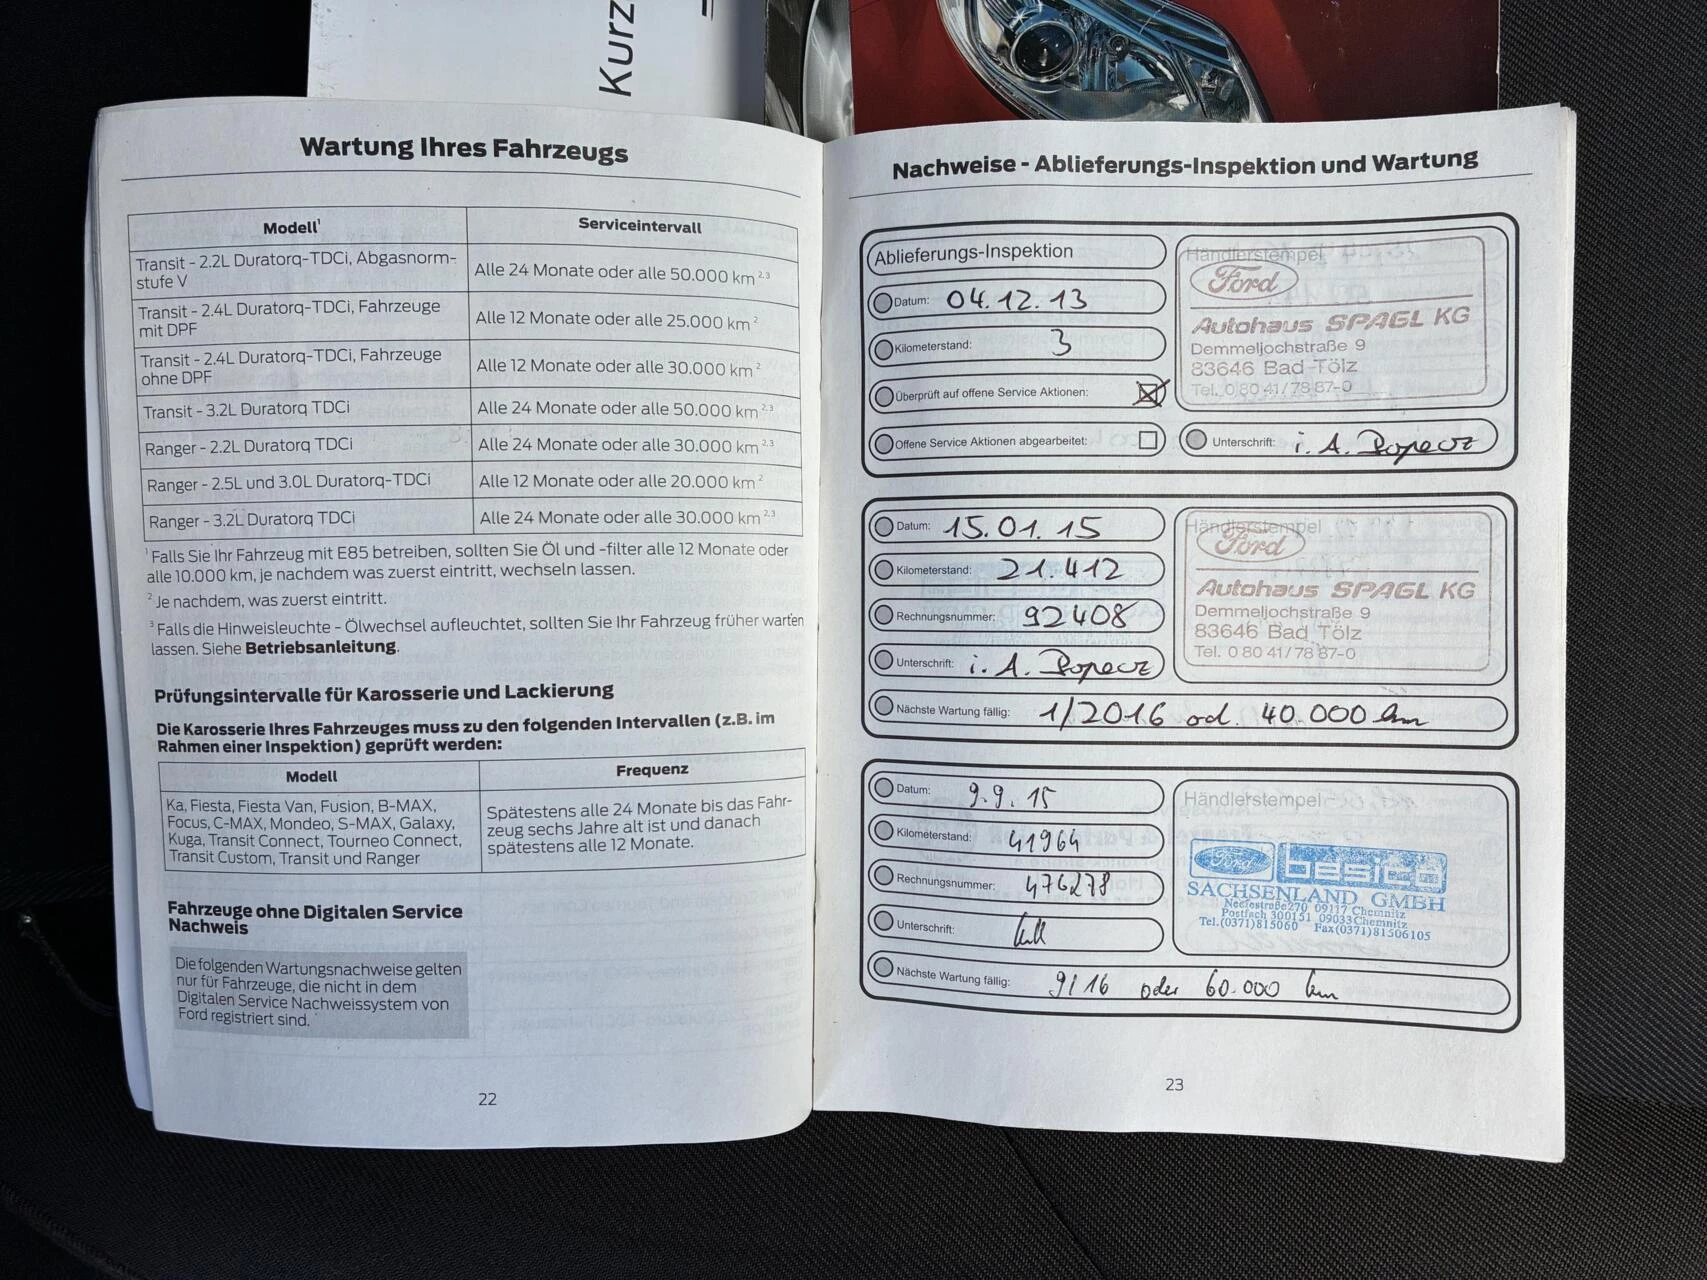 Kurz
Wartung Ihres Fahrzeugs
Modell¹
Serviceintervall
Transit - 2.2L Duratorq-TDCi, Abgasnorm-
stufe V
Alle 24 Monate oder alle 50.000 km ²,³
Transit - 2.4L Duratorq-TDCi, Fahrzeuge
mit DPF
Alle 12 Monate oder alle 25.000 km ²
Transit - 2.4L Duratorq-TDCi, Fahrzeuge
ohne DPF
Alle 12 Monate oder alle 30.000 km ²
Transit - 3.2L Duratorq TDCi
Alle 24 Monate oder alle 50.000 km ²,³
Ranger - 2.2L Duratorq TDCi
Alle 24 Monate oder alle 30.000 km ²,³
Ranger - 2.5L und 3.0L Duratorq-TDCi
Alle 12 Monate oder alle 20.000 km ²
Ranger - 3.2L Duratorq TDCi
Alle 24 Monate oder alle 30.000 km ²,³
¹ Falls Sie Ihr Fahrzeug mit E85 betreiben, sollten Sie Öl und -filter alle 12 Monate oder
alle 10.000 km, je nachdem was zuerst eintritt, wechseln lassen.
² Je nachdem, was zuerst eintritt.
³ Falls die Hinweisleuchte - Ölwechsel aufleuchtet, sollten Sie Ihr Fahrzeug früher warten
lassen. Siehe Betriebsanleitung.
Prüfungsintervalle für Karosserie und Lackierung
Die Karosserie Ihres Fahrzeuges muss zu den folgenden Intervallen (z.B. im
Rahmen einer Inspektion) geprüft werden:
Modell
Frequenz
Ka, Fiesta, Fiesta Van, Fusion, B-MAX,
Focus, C-MAX, Mondeo, S-MAX, Galaxy,
Kuga, Transit Connect, Tourneo Connect,
Transit Custom, Transit und Ranger
Spätestens alle 24 Monate bis das Fahr-
zeug sechs Jahre alt ist und danach
spätestens alle 12 Monate.
Fahrzeuge ohne Digitalen Service
Nachweis
Die folgenden Wartungsnachweise gelten
nur für Fahrzeuge, die nicht in dem
Digitalen Service Nachweissystem von
Ford registriert sind.
22
Nachweise - Ablieferungs-Inspektion und Wartung
Ablieferungs-Inspektion
Datum: 04.12.13
Kilometerstand: 3
Überprüft auf offene Service Aktionen:
Offene Service Aktionen abgearbeitet:
Händlerstempel
Ford
Autohaus SPAGL KG
Demmeljochstraße 9
83646 Bad Tölz
Tel. 0 80 41/78 87-0
Unterschrift: i. A.
Datum: 15.01.15
Kilometerstand: 21.412
Rechnungsnummer: 92408
Unterschrift: i. A.
Händlerstempel
Ford
Autohaus SPAGL KG
Demmeljochstraße 9
83646 Bad Tölz
Tel. 0 80 41/78 87-0
Nächste Wartung fällig: 1/2016 od. 40.000 km
Datum: 9.9.15
Kilometerstand: 41964
Rechnungsnummer: 476278
Unterschrift:
Händlerstempel
Ford besico
SACHSENLAND GMBH
Neefestraße 270 09117 Chemnitz
Postfach 300151 09033 Chemnitz
Tel.(0371)815060 Fax(0371)81506105
Nächste Wartung fällig: 9/16 oder 60.000 km
23